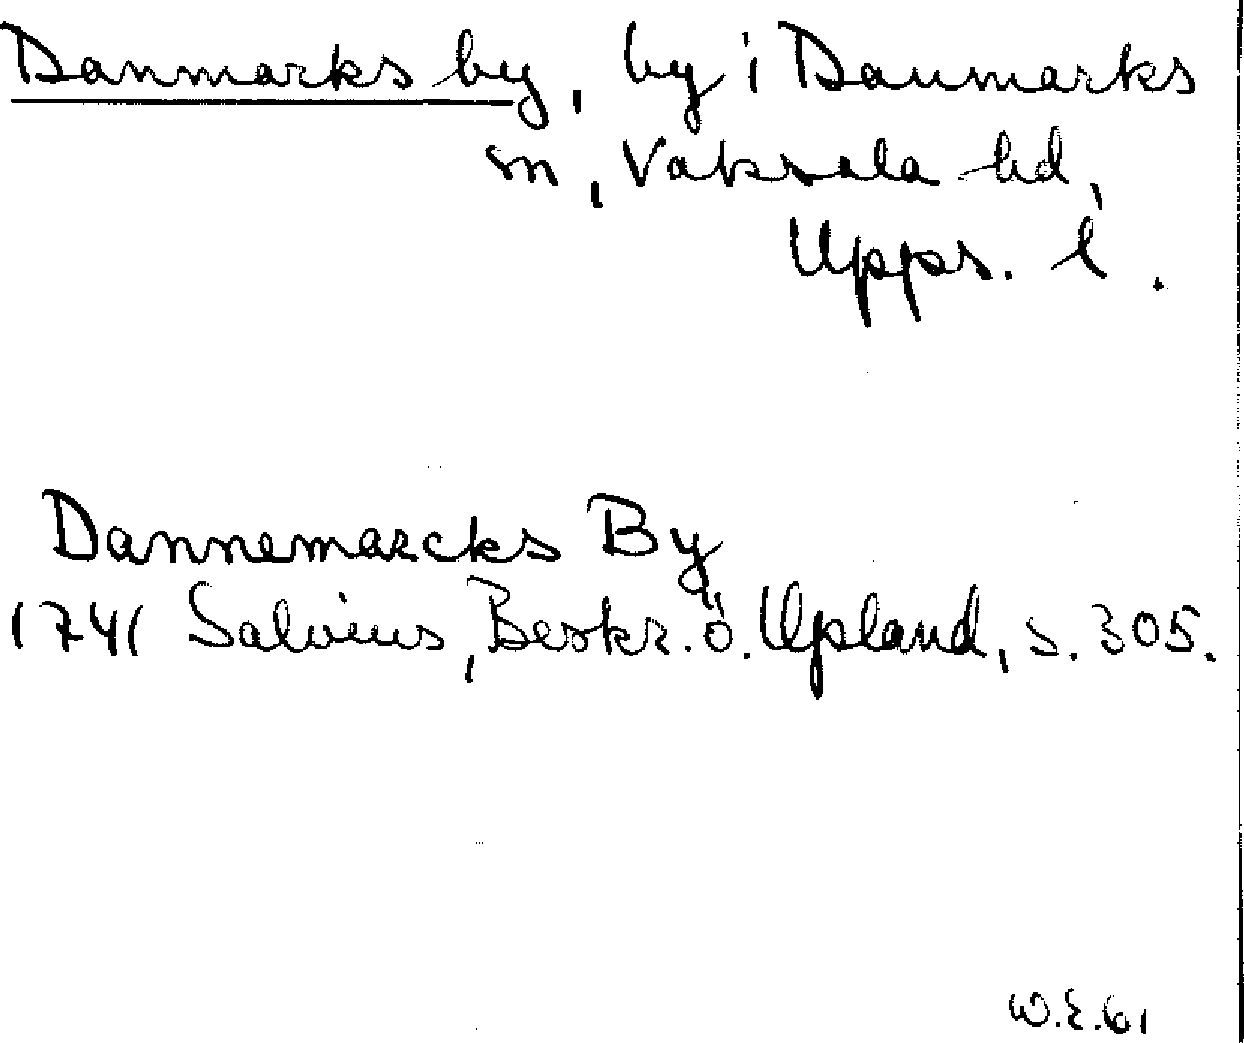 Danmarks by, by i Danmarks
sn, Vaksala hd,
Upps. l.
Dannemarcks By
1741 Salvius, Beskr. ö. Upland, s. 305.
W.E.61